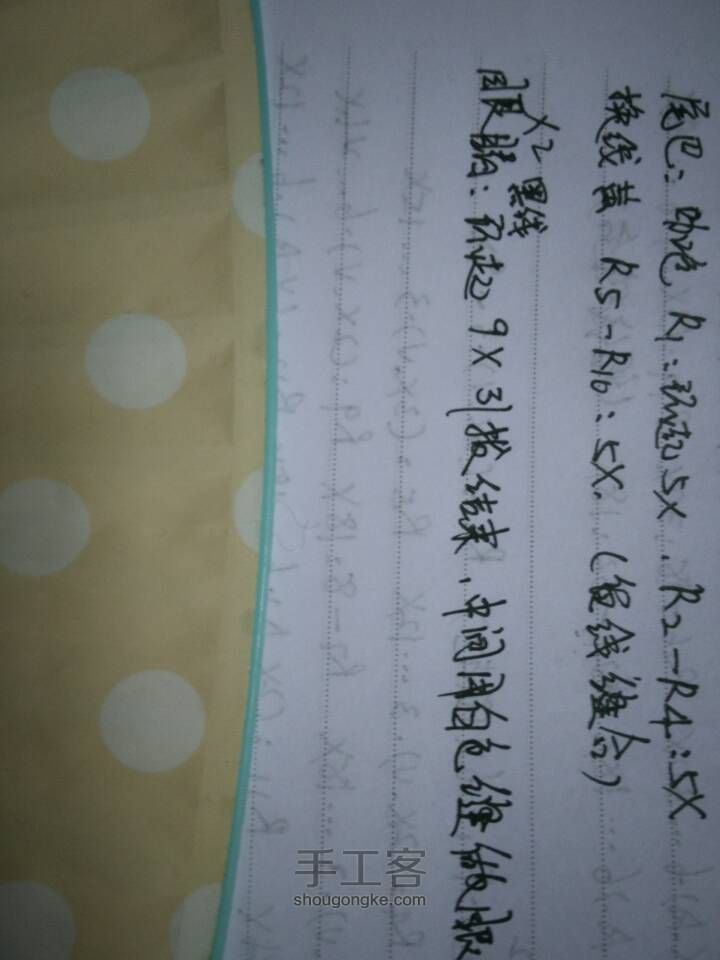 尾巴：咖色 R1：环起5X．R2-R4：5X
换线黄 R5-R10：5X．(留线缝合)
X2 黑线
眼睛：环起9X引拔结束，中间用白色缝做眼
手工客
shougongke.com